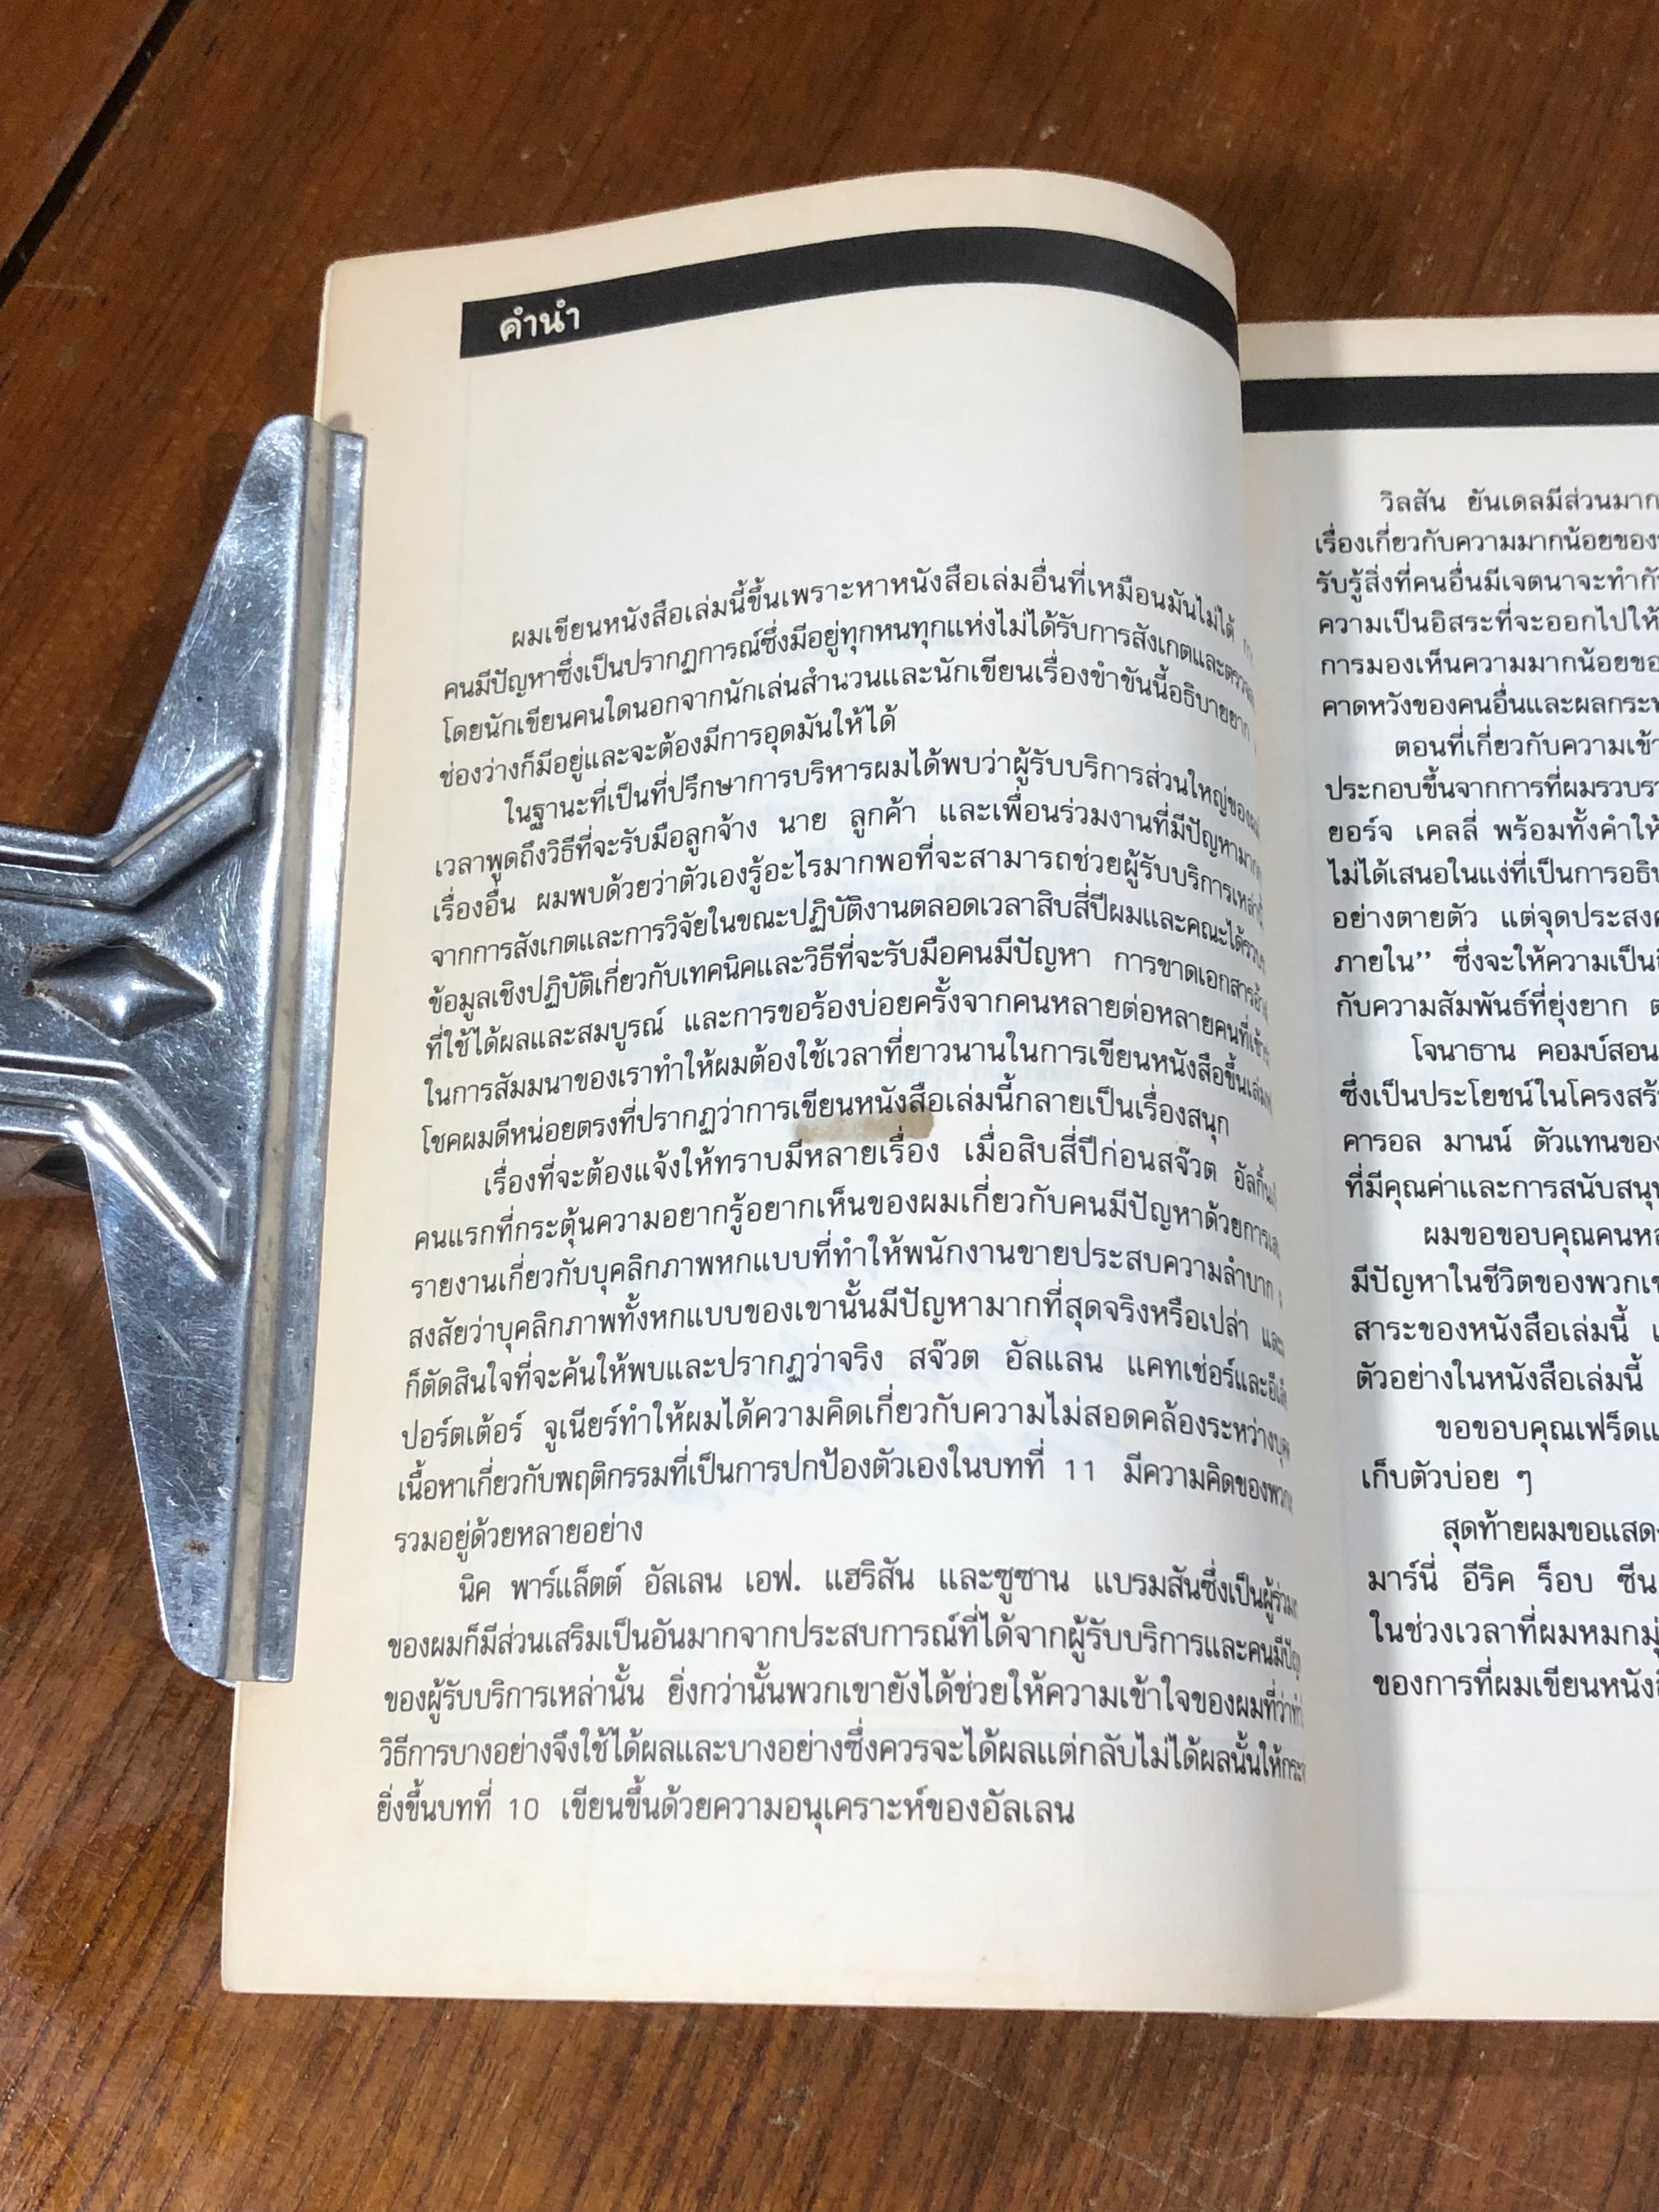 คำนำ
ผมเขียนหนังสือเล่มนี้ขึ้นเพราะหาหนังสือเล่มอื่นที่เหมือนมันไม่ได้
คนมีปัญหาซึ่งเป็นปรากฏการณ์ซึ่งมีอยู่ทุกหนทุกแห่งไม่ได้รับการสังเกตและ
โดยนักเขียนคนใดนอกจากนักเล่นสำนวนและนักเขียนเรื่องขำขันนี้อธิบายยาก
ช่องว่างก็มีอยู่และจะต้องมีการอุดมันให้ได้
ในฐานะที่เป็นที่ปรึกษาการบริหารผมได้พบว่าผู้รับบริการส่วนใหญ่ของผม
เวลาพูดถึงวิธีที่จะรับมือลูกจ้าง นาย ลูกค้า และเพื่อนร่วมงานที่มีปัญหา
เรื่องอื่น ผมพบด้วยว่าตัวเองรู้อะไรมากพอที่จะสามารถช่วยผู้รับบริการ
จากการสังเกตและการวิจัยในขณะปฏิบัติงานตลอดเวลาสิบสี่ปีผมและคณะได้
ข้อมูลเชิงปฏิบัติเกี่ยวกับเทคนิคและวิธีที่จะรับมือคนมีปัญหา การขาดเอกสาร
ที่ใช้ได้ผลและสมบูรณ์ และการขอร้องบ่อยครั้งจากคนหลายต่อหลายคนที่
ในการสัมมนาของเราทำให้ผมต้องใช้เวลาที่ยาวนานในการเขียนหนังสือขึ้น
โชคผมดีหน่อยตรงที่ปรากฏว่าการเขียนหนังสือเล่มนี้กลายเป็นเรื่องสนุก
เรื่องที่จะต้องแจ้งให้ทราบมีหลายเรื่อง เมื่อสิบสี่ปีก่อนสจ๊วต
คนแรกที่กระตุ้นความอยากรู้อยากเห็นของผมเกี่ยวกับคนมีปัญหาด้วยการ
รายงานเกี่ยวกับบุคลิกภาพหกแบบที่ทำให้พนักงานขายประสบความลำบาก
สงสัยว่าบุคลิกภาพทั้งหกแบบของเขานั้นมีปัญหามากที่สุดจริงหรือเปล่า
ก็ตัดสินใจที่จะค้นให้พบและปรากฏว่าจริง สจ๊วต อัลแลน แคทเช่อร์และ
ปอร์ตเต้อร์ จูเนียร์ทำให้ผมได้ความคิดเกี่ยวกับความไม่สอดคล้องระหว่าง
เนื้อหาเกี่ยวกับพฤติกรรมที่เป็นการปกป้องตัวเองในบทที่ 11 มีความคิดของ
รวมอยู่ด้วยหลายอย่าง
นิค พาร์แล็ตต์ อัลเลน เอฟ. แฮริสัน และซูซาน แบรมสันซึ่งเป็น
ของผมก็มีส่วนเสริมเป็นอันมากจากประสบการณ์ที่ได้จากผู้รับบริการและคนมี
ของผู้รับบริการเหล่านั้น ยิ่งกว่านั้นพวกเขายังได้ช่วยให้ความเข้าใจของผมที่ว่า
วิธีการบางอย่างจึงใช้ได้ผลและบางอย่างซึ่งควรจะได้ผลแต่กลับไม่ได้ผลนั้นให้
ยิ่งขึ้นบทที่ 10 เขียนขึ้นด้วยความอนุเคราะห์ของอัลเลน
วิลสัน ยันเดลมีส่วนมาก
เรื่องเกี่ยวกับความมากน้อยของ
รับรู้สิ่งที่คนอื่นมีเจตนาจะทำ
ความเป็นอิสระที่จะออกไปให้
การมองเห็นความมากน้อย
คาดหวังของคนอื่นและ
ตอนที่เกี่ยวกับความ
ประกอบขึ้นจากการที่ผม
ยอร์จ เคลลี่ พร้อมทั้ง
ไม่ได้เสนอในแง่ที่เป็นการ
อย่างตายตัว แต่
ภายใน” ซึ่งจะให้ความเป็น
กับความสัมพันธ์ที่ยุ่งยาก
โจนาธาน คอมบ์สอน
ซึ่งเป็นประโยชน์ใน
คารอล มานน์ ตัวแทนของ
ที่มีคุณค่าและการ
ผมขอขอบคุณคน
มีปัญหาในชีวิตของ
สาระของหนังสือเล่มนี้
ตัวอย่างในหนังสือเล่มนี้
ขอขอบคุณเฟร็ด
เก็บตัวบ่อย ๆ
สุดท้ายผมขอ
มาร์นี่ อีริค ร็อบ ซีน
ในช่วงเวลาที่ผม
ของการที่ผมเขียน